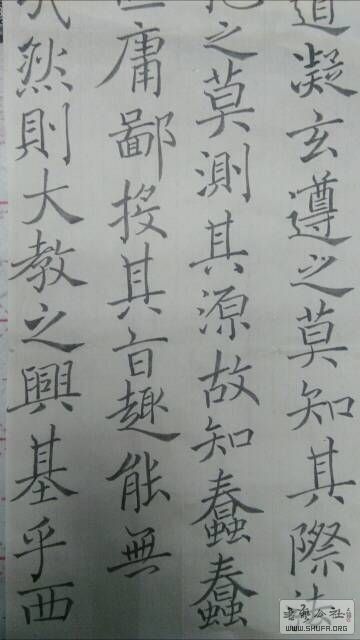 道凝玄遵之莫知其際法
之莫測其源故知蠢蠢
庸鄙投其旨趣能無
然則大教之興基乎西
书艺公社
WWW.SHUFA.ORG